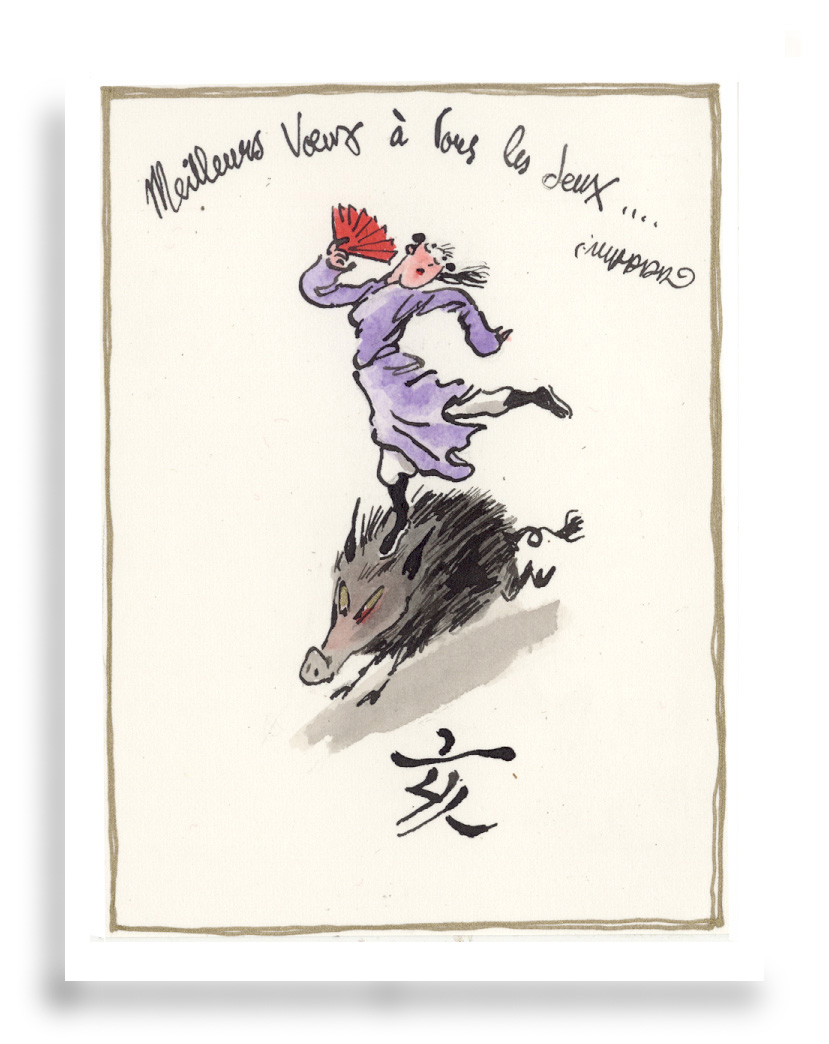 Meilleurs Vœux à tous les deux ....
亥